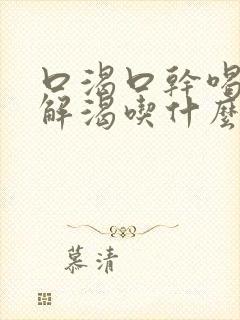 口渴口幹喝
解渴喫什麼
慕清